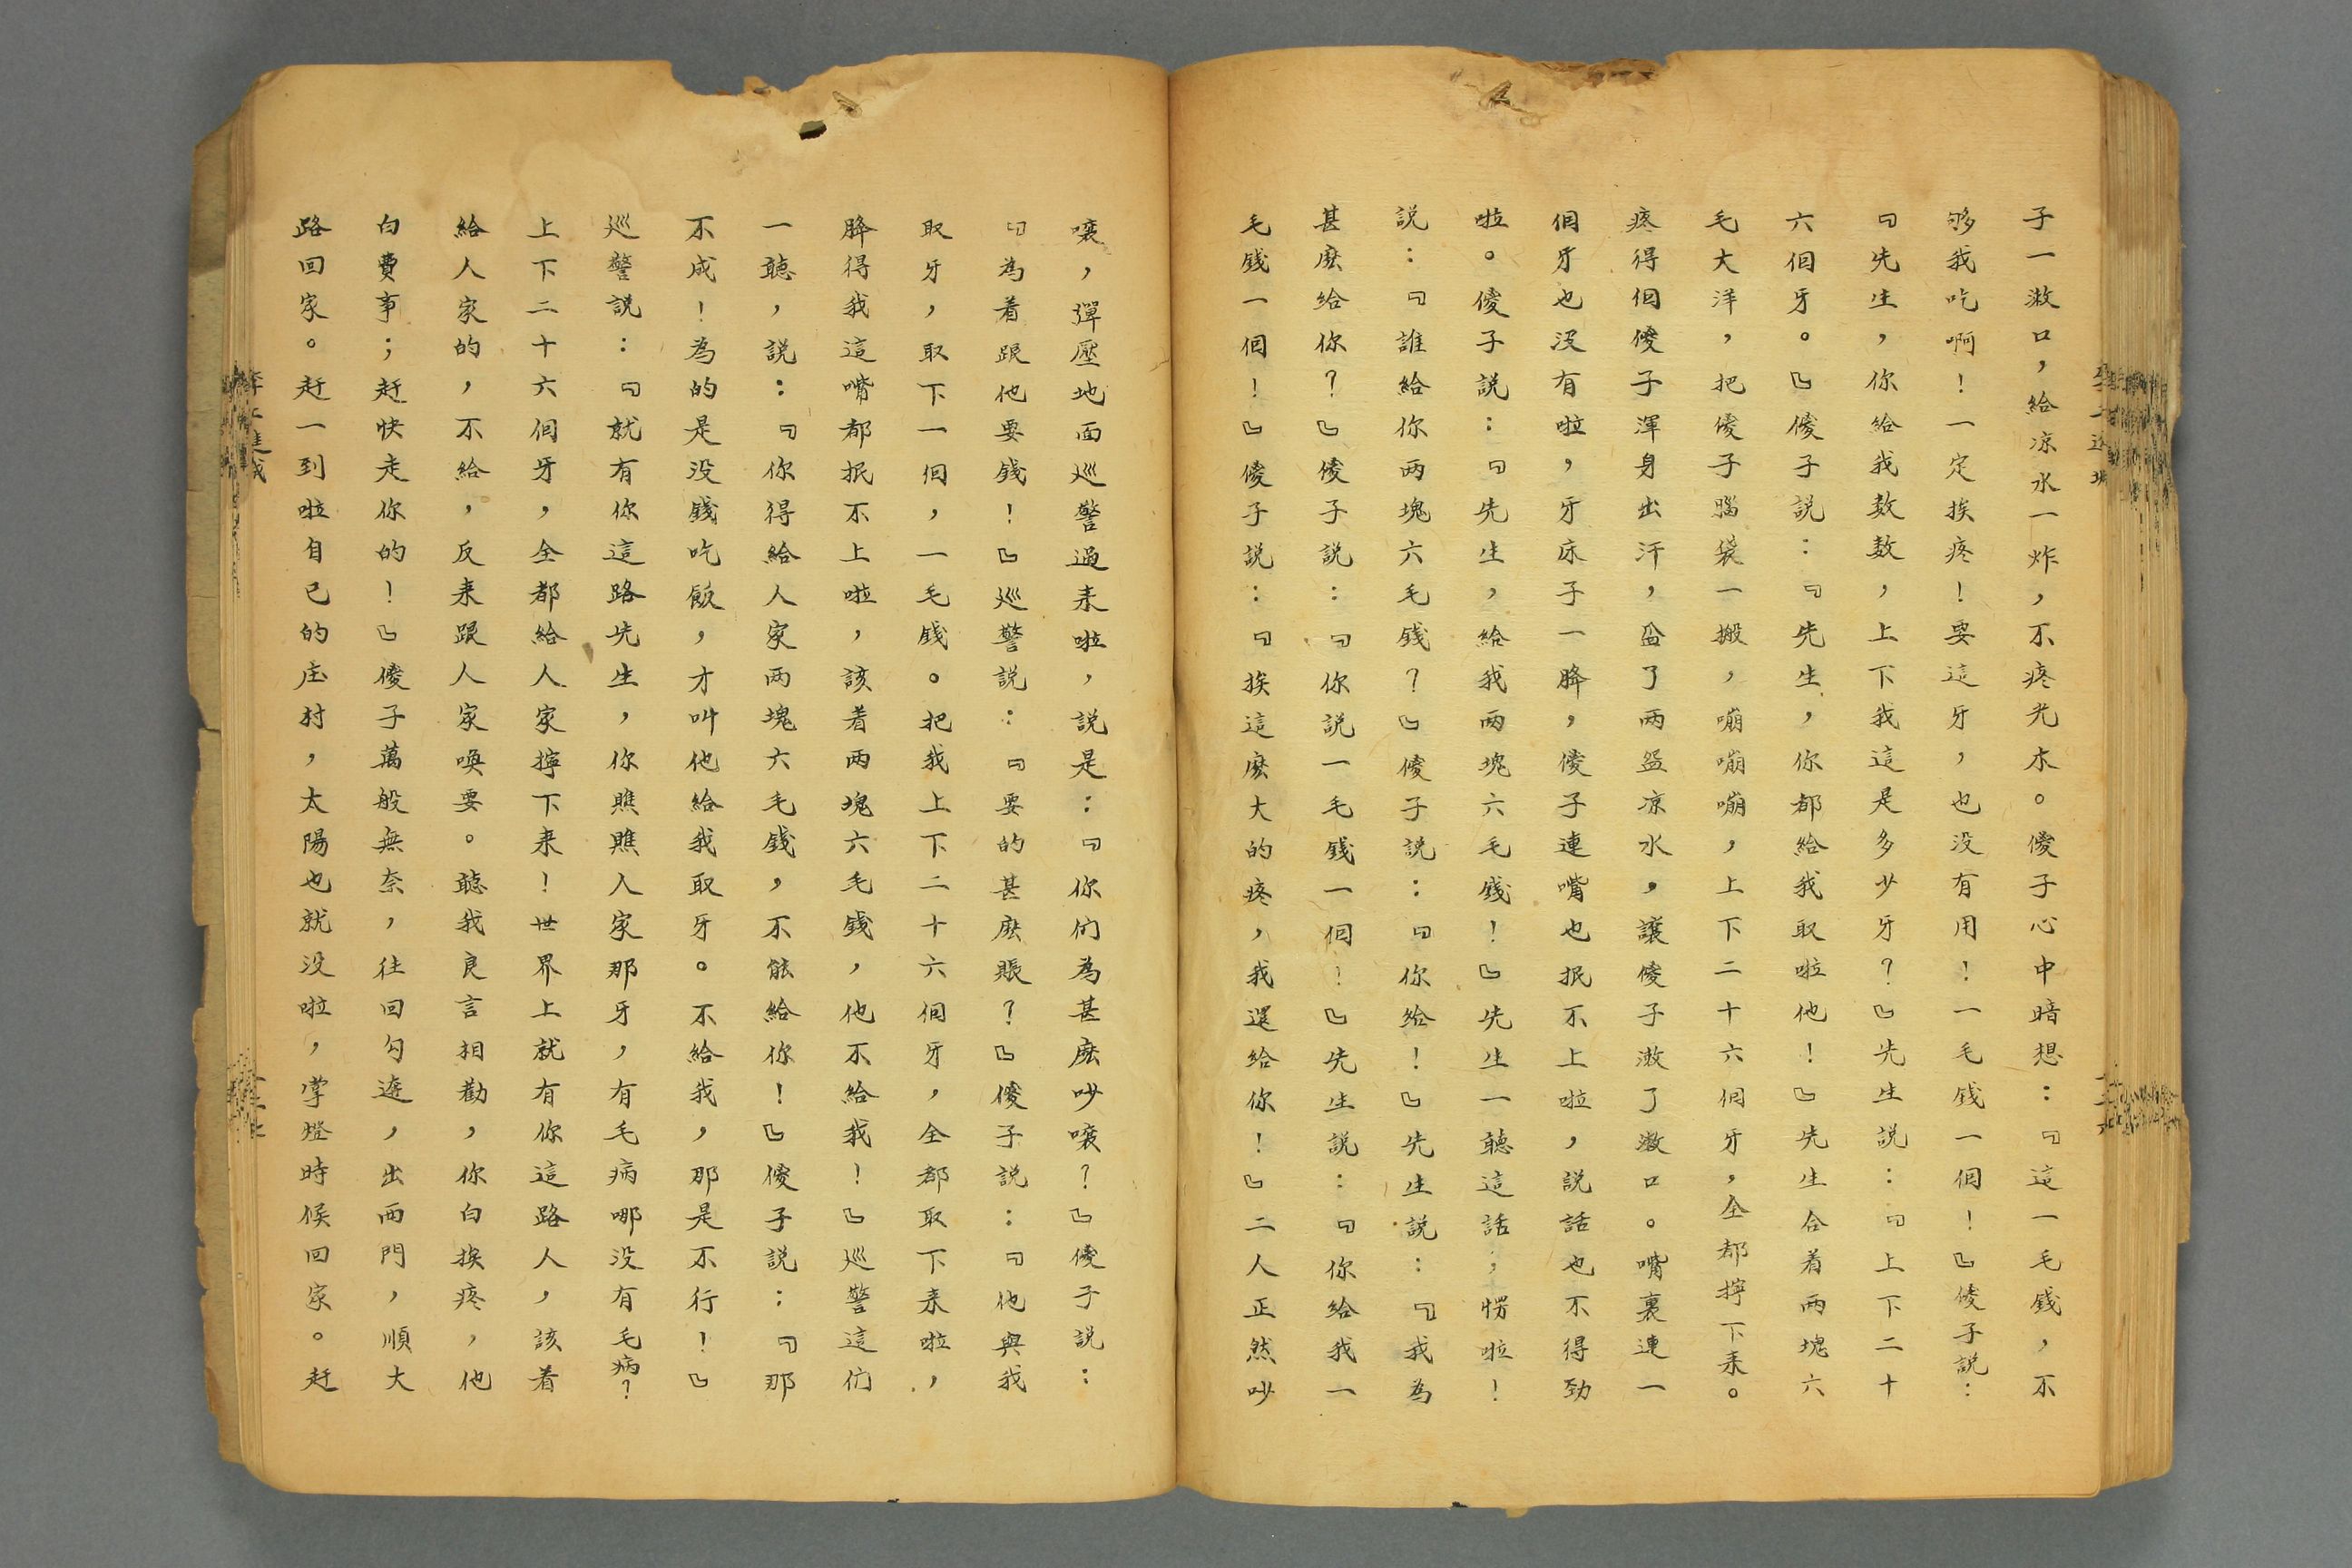 子一漱口，給凉水一炸，不疼光木。傻子心中暗想：『這一毛錢，不
够我吃啊！一定挨疼！要這牙，也没有用！一毛錢一個！』傻子説：
『先生，你給我数数，上下我這是多少牙？』先生説：『上下二十
六個牙。』傻子説：『先生，你都給我取啦他！』先生合着兩塊六
毛大洋，把傻子腦袋一搬，嘣嘣嘣，上下二十六個牙，全都擰下来。
疼得個傻子渾身出汗，盁了兩盁凉水，讓傻子漱了漱口。嘴裏連一
個牙也没有啦，牙床子一胮，傻子連嘴也抿不上啦，説話也不得勁
啦。傻子説：『先生，給我兩塊六毛錢！』先生一聽這話，愣啦！
説：『誰給你兩塊六毛錢？』傻子説：『你給！』先生説：『我為
甚麽給你？』傻子説：『你説一毛錢一個！』先生説：『你給我一
毛錢一個！』傻子説：『挨這麽大的疼，我還給你！』二人正然吵
嚷，彈壓地面巡警過来啦，説是：『你們為甚麽吵嚷？』傻子説：
『為着跟他要錢！』巡警説：『要的甚麽賬？』傻子説：『他與我
取牙，取下一個，一毛錢。把我上下二十六個牙，全都取下来啦，
胮得我這嘴都抿不上啦，該着兩塊六毛錢，他不給我！』巡警這們
一聽，説：『你得給人家兩塊六毛錢，不能給你！』傻子説：『那
不成！為的是没錢吃飯，才叫他給我取牙。不給我，那是不行！』
巡警説：『就有你這路先生，你瞧瞧人家那牙，有毛病哪没有毛病？
上下二十六個牙，全都給人家擰下来！世界上就有你這路人，該着
給人家的，不給，反来跟人家唤要。聽我良言相勸，你白挨疼，他
白費事；赶快走你的！』傻子萬般無奈，往回勾遴，出西門，順大
路回家。赶一到啦自己的庄村，太陽也就没啦，掌燈時候回家。赶